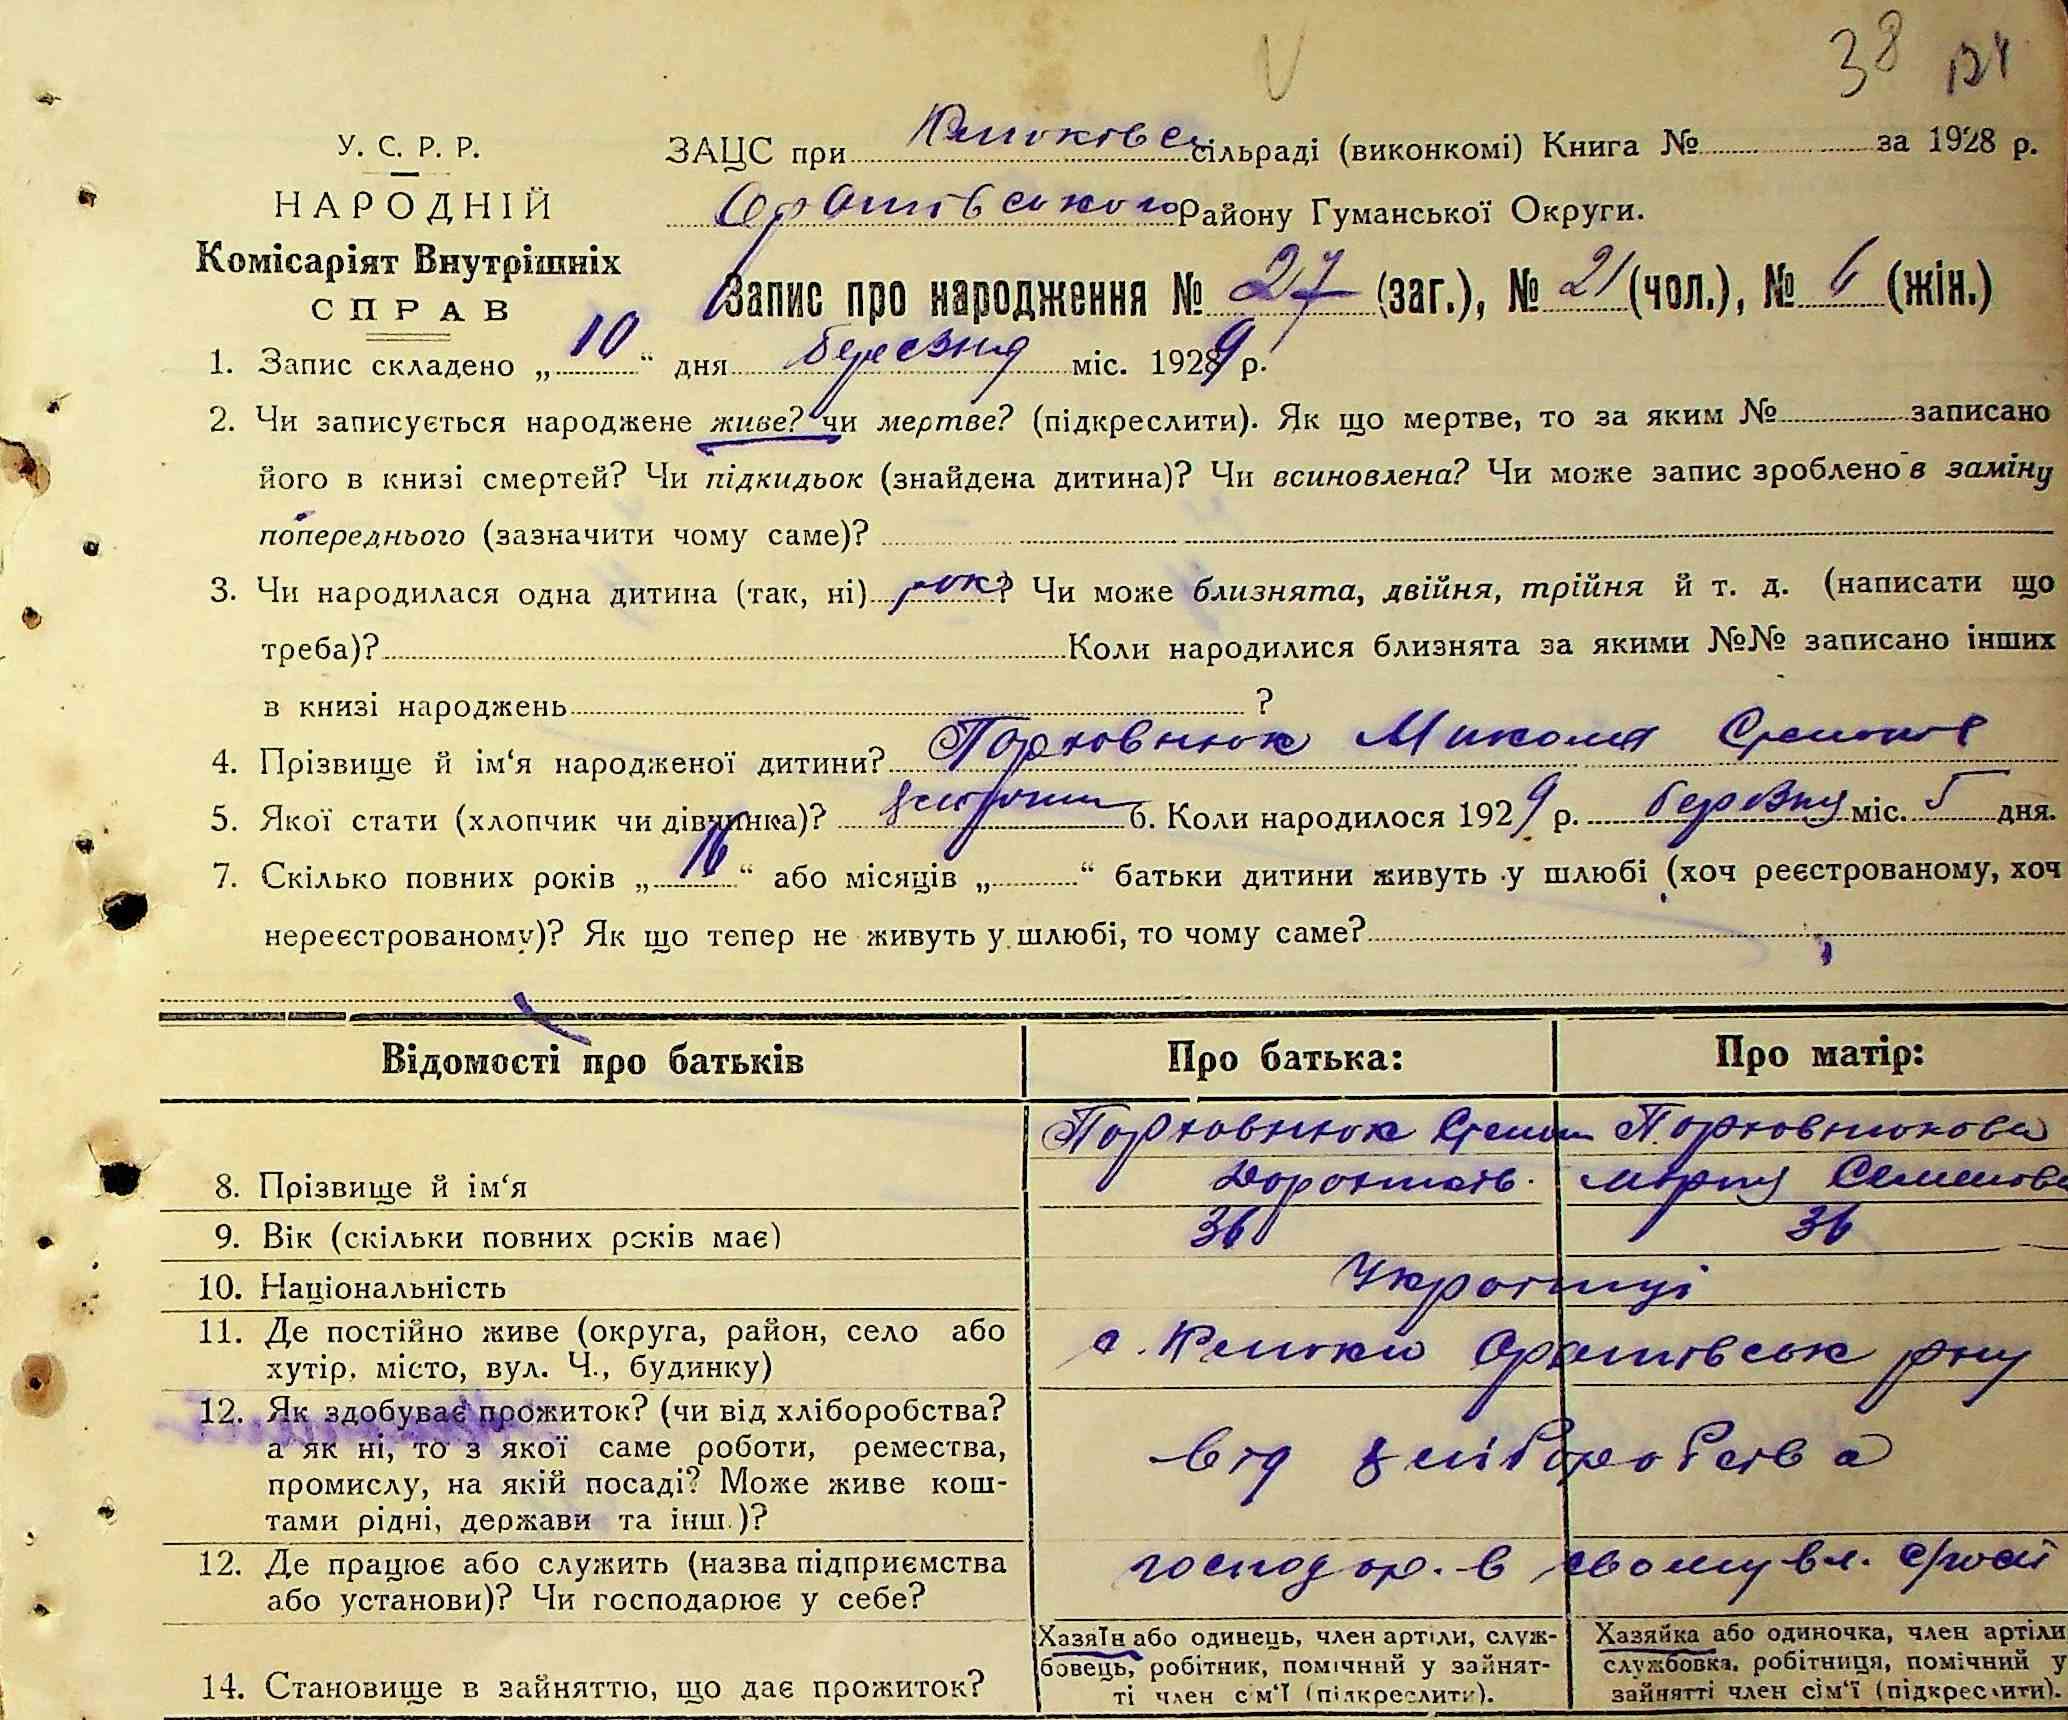 38
У. С. Р. Р.
НАРОДНІЙ
Комісаріят Внутрішніх
СПРАВ
ЗАЦС при Клюківс сільраді (виконкомі) Книга № за 1928 р.
Оратівського Району Гуманської Округи.
Запис про народження № 27 (заг.), № 21 (чол.), № 6 (жін.)
1. Запис складено „10“ дня березня міс. 1929 р.
2. Чи записується народжене живе? чи мертве? (підкреслити). Як що мертве, то за яким № записано
його в книзі смертей? Чи підкидьок (знайдена дитина)? Чи всиновлена? Чи може запис зроблено в заміну
попереднього (зазначити чому саме)?
3. Чи народилася одна дитина (так, ні) ? Чи може близнята, двійня, трійня й т. д. (написати що
треба)? Коли народилися близнята за якими №№ записано інших
в книзі народжень ?
4. Прізвище й ім‘я народженої дитини? Порховнюк Микола
5. Якої стати (хлопчик чи дівчинка)? 6. Коли народилося 1929 р. березня міс. 5 дня.
7. Скілько повних років „16“ або місяців „ “ батьки дитини живуть у шлюбі (хоч реєстрованому, хоч
нереєстрованому)? Як що тепер не живуть у шлюбі, то чому саме?
Відомості про батьків Про батька: Про матір:
Порховнюк Порховнюкова
8. Прізвище й ім‘я
9. Вік (скільки повних років має) 36 36
10. Національність Українці
11. Де постійно живе (округа, район, село або
хутір, місто, вул. Ч., будинку) с. Клюки Оратівськ рну
12. Як здобуває прожиток? (чи від хліборобства?
а як ні, то з якої саме роботи, ремества,
промислу, на якій посаді? Може живе кош-
тами рідні, держави та інш.)? від хліборобства
12. Де працює або служить (назва підприємства
або установи)? Чи господарює у себе? господар. в свому вл.
14. Становище в зайняттю, що дає прожиток?
Хазяїн або одинець, член артіли, служ-
бовець, робітник, помічний у зайнят-
ті член сім‘ї (підкреслити).
Хазяйка або одиночка, член артіли
службовка, робітниця, помічний у
зайнятті член сім‘ї (підкреслити).